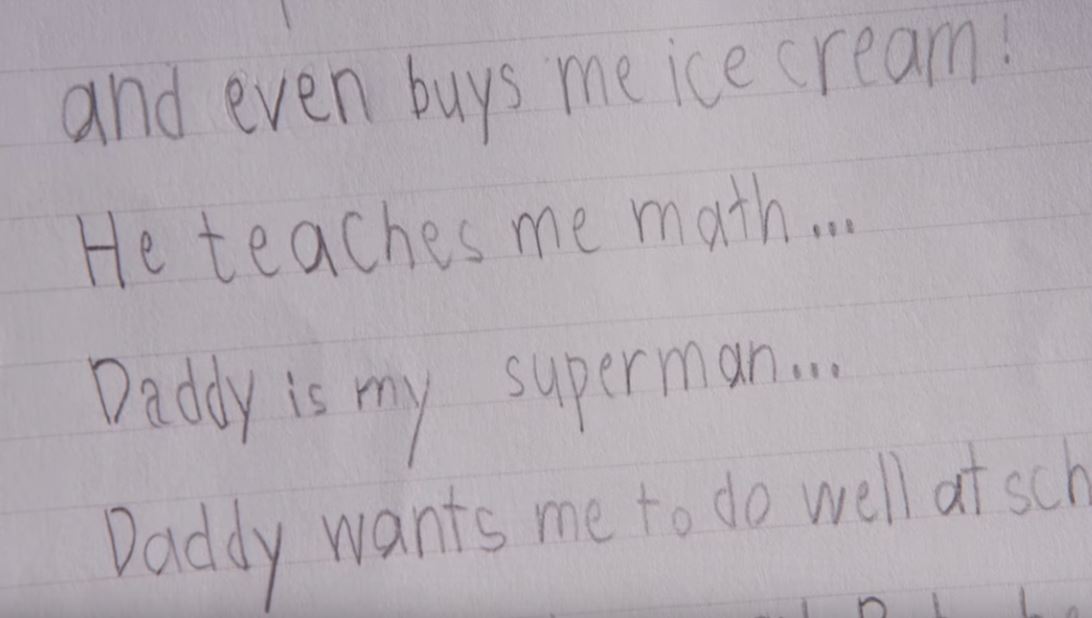 and even buys me ice cream!
He teaches me math...
Daddy is my superman...
Daddy wants me to do well at sch